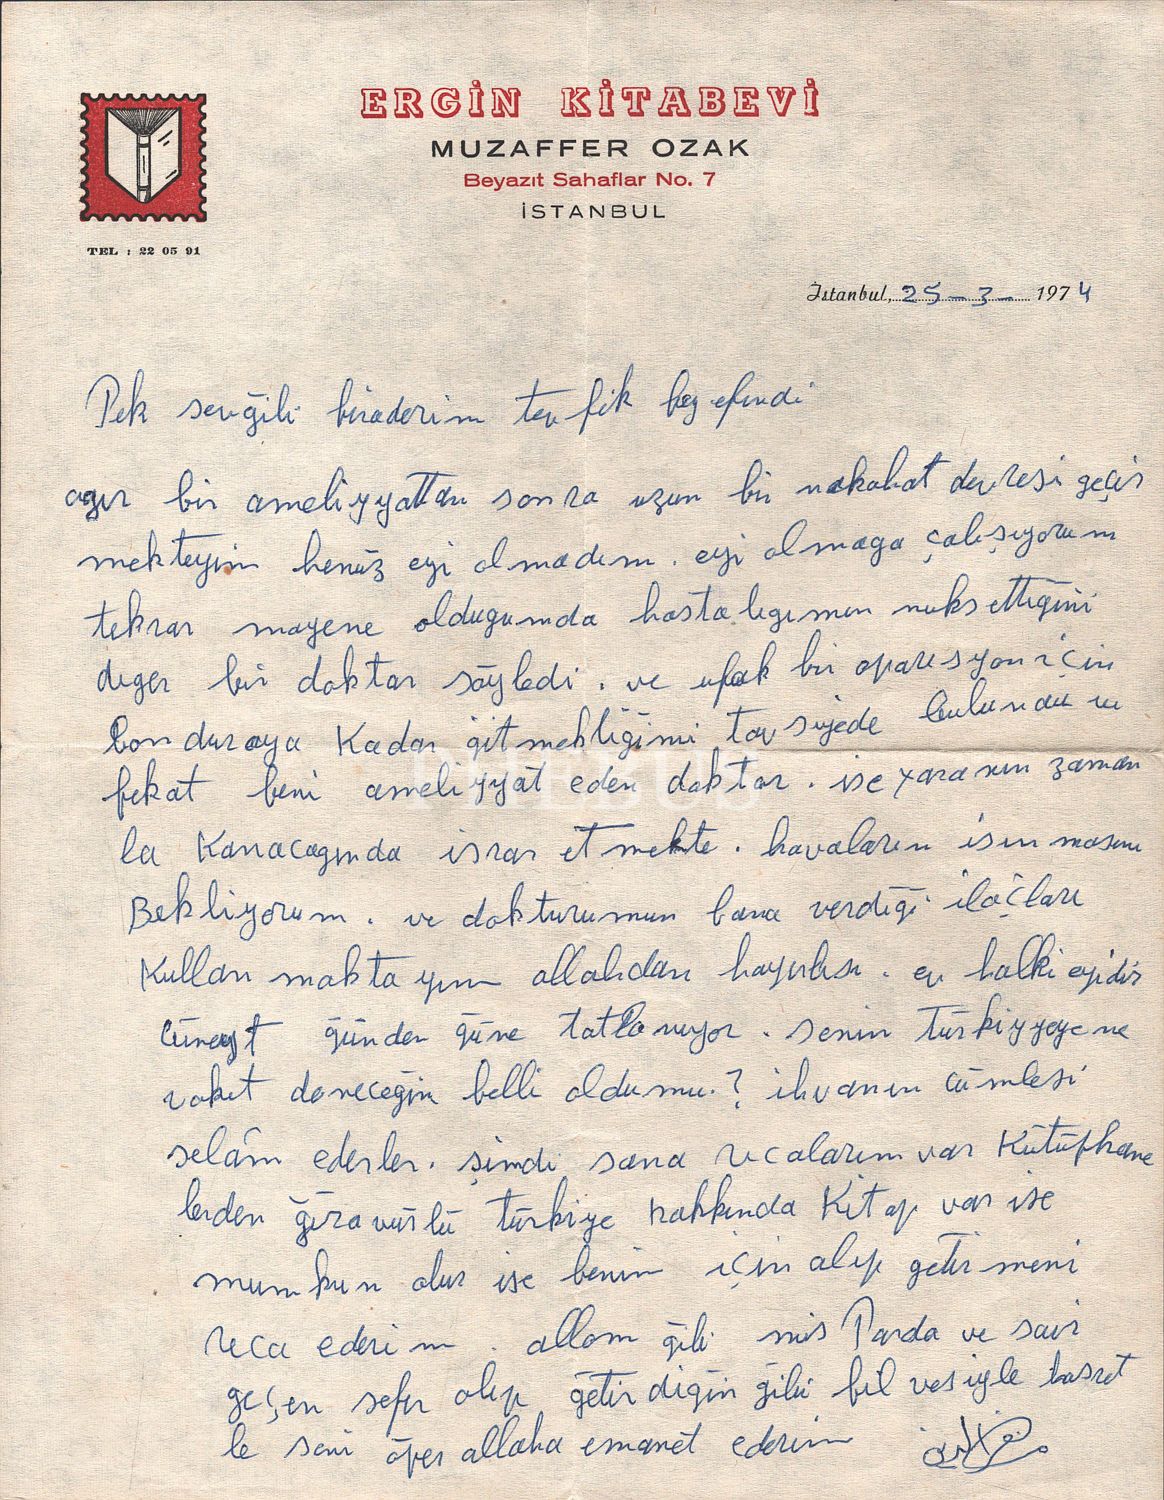 ERGİN KİTABEVİ
MUZAFFER OZAK
Beyazıt Sahaflar No. 7
İSTANBUL
TEL : 22 05 91
İstanbul, 25-3- 1974
Pek sevğili biraderim tevfik beyefendi
agır bir ameliyyattan sonra uzun bir nekahat devresi geçir
mekteyim henüz eyi olmadım. eyi olmaga çalışıyorum
tekrar mayene oldugumda hastalıgımın nuksettiğini
diger bir doktar söyledi. ve ufak bir oparesyon için
Londuraya Kadar ğitmekliğimi tavsiyede bulundu
fekat beni ameliyyat eden doktar. ise yaranın zaman
la Kanacagında israr etmekte. havaların isınmasını
Bekliyorum. ve dokturumun bana verdiği ilaçları
Kullanmaktayım allahdan hayırlısı. ev halki eyidir
Cüneyt ğünden ğüne tatlanıyor. senin türkiyyeye ne
vakıt doneceğin belli oldumu.? ihvanın cümlesi
selâm ederler. şimdi sana ricalarım var Kütüphane
lerden ğıravürlü türkiye hakkında Kitap var ise
mumkun olur ise benim için alıp getirmeni
rica ederim. allam ğibi mis Parda ve sair
geçen sefer alıp ğetirdiğin ğibi bil vesiyle hasret
le seni öper allaha emanet ederim